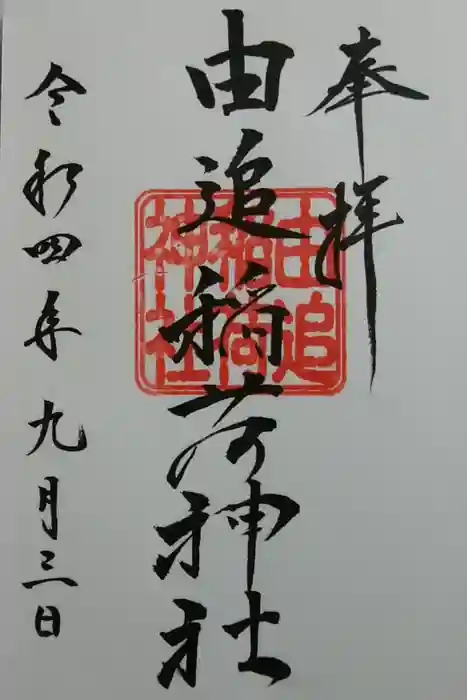 奉拝
由追稲荷神社
令和四年九月三日
由追
稲荷
神社